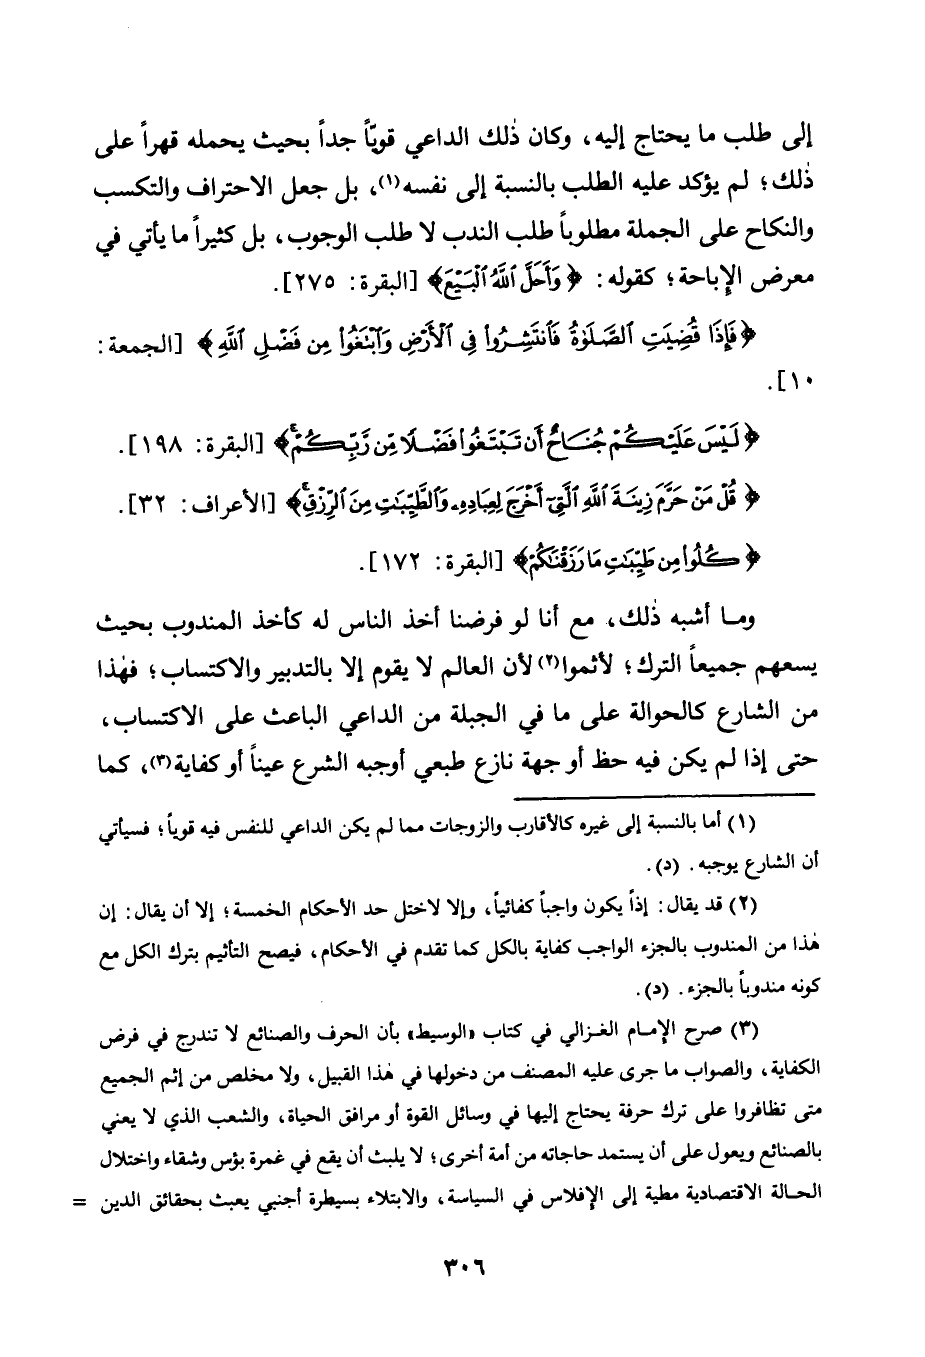 إلى طلب ما يحتاج إليه، وكان ذٰلك الداعي قويّاً جداً بحيث يحمله قهراً على
ذٰلك؛ لم يؤكد عليه الطلب بالنسبة إلى نفسه(١)، بل جعل الاحتراف والتكسب
والنكاح على الجملة مطلوباً طلب الندب لا طلب الوجوب، بل كثيراً ما يأتي في
معرض الإباحة؛ كقوله: ﴿وَأَحَلَّ ٱللَّهُ ٱلْبَيْعَ﴾ [البقرة: ٢٧٥].
﴿فَإِذَا قُضِيَتِ ٱلصَّلَوٰةُ فَٱنتَشِرُوا۟ فِى ٱلْأَرْضِ وَٱبْتَغُوا۟ مِن فَضْلِ ٱللَّهِ﴾ [الجمعة:
١٠].
﴿لَيْسَ عَلَيْكُمْ جُنَاحٌ أَن تَبْتَغُوا۟ فَضْلًا مِّن رَّبِّكُمْ ۚ﴾ [البقرة: ١٩٨].
﴿قُلْ مَنْ حَرَّمَ زِينَةَ ٱللَّهِ ٱلَّتِىٓ أَخْرَجَ لِعِبَادِهِۦ وَٱلطَّيِّبَٰتِ مِنَ ٱلرِّزْقِ ۚ﴾ [الأعراف: ٣٢].
﴿كُلُوا۟ مِن طَيِّبَٰتِ مَا رَزَقْنَٰكُمْ﴾ [البقرة: ١٧٢].
وما أشبه ذٰلك، مع أنا لو فرضنا أخذ الناس له كأخذ المندوب بحيث
يسعهم جميعاً الترك؛ لأثموا(٢) لأن العالم لا يقوم إلا بالتدبير والاكتساب؛ فهٰذا
من الشارع كالحوالة على ما في الجبلة من الداعي الباعث على الاكتساب،
حتى إذا لم يكن فيه حظ أو جهة نازع طبعي أوجبه الشرع عيناً أو كفاية(٣)، كما
(١) أما بالنسبة إلى غيره كالأقارب والزوجات مما لم يكن الداعي للنفس فيه قوياً؛ فسيأتي
أن الشارع يوجبه. (د).
(٢) قد يقال: إذاً يكون واجباً كفائياً، وإلا لاختل حد الأحكام الخمسة؛ إلا أن يقال: إن
هٰذا من المندوب بالجزء الواجب كفاية بالكل كما تقدم في الأحكام، فيصح التأثيم بترك الكل مع
كونه مندوباً بالجزء. (د).
(٣) صرح الإمام الغزالي في كتاب «الوسيط» بأن الحرف والصنائع لا تندرج في فرض
الكفاية، والصواب ما جرى عليه المصنف من دخولها في هٰذا القبيل، ولا مخلص من إثم الجميع
متى تظافروا على ترك حرفة يحتاج إليها في وسائل القوة أو مرافق الحياة، والشعب الذي لا يعني
بالصنائع ويعول على أن يستمد حاجاته من أمة أخرى؛ لا يلبث أن يقع في غمرة بؤس وشقاء واختلال
الحالة الاقتصادية مطية إلى الإفلاس في السياسة، والابتلاء بسيطرة أجنبي يعبث بحقائق الدين =
٣٠٦